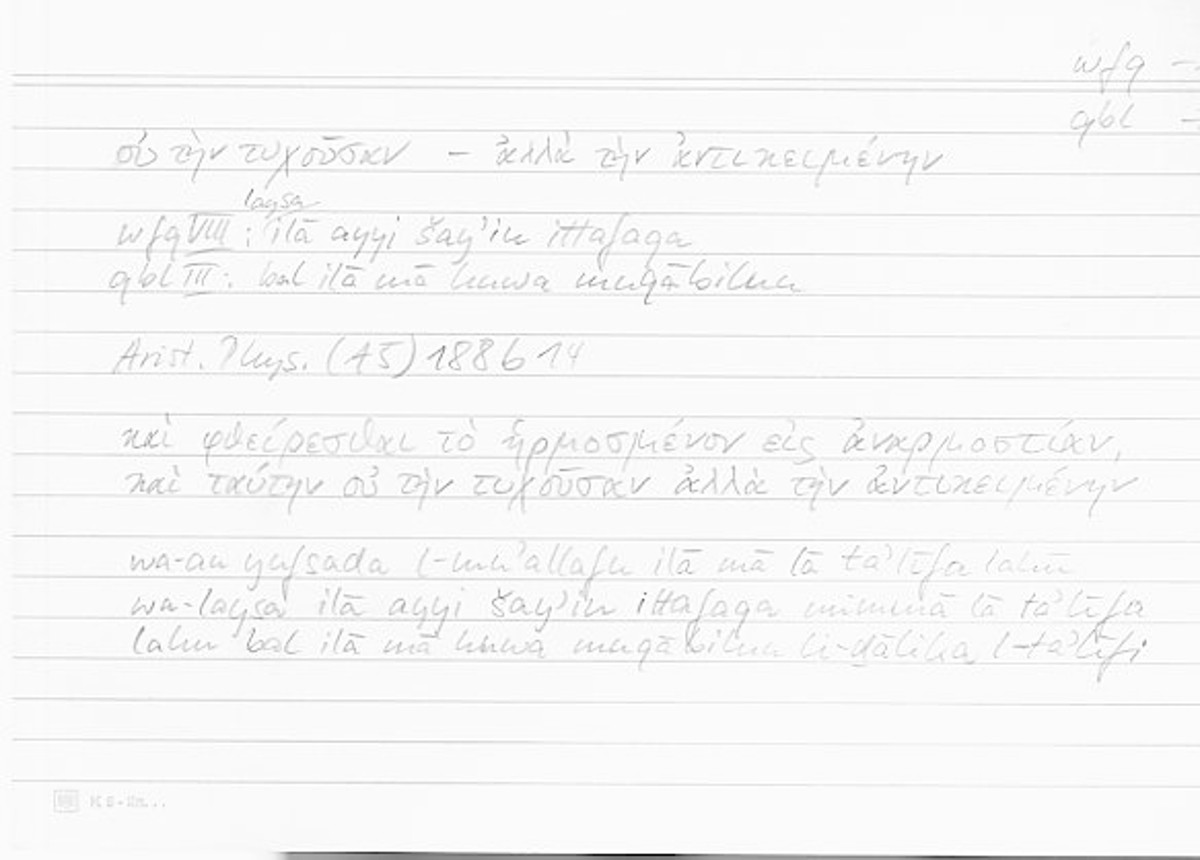 wfq →
qbl →
οὐ τὴν τυχοῦσαν – ἀλλὰ τὴν ἀντικειμένην
laysa
wfq VIII: ilā ayyi šayʾin ittafaqa
qbl III: bal ilā mā huwa muqābilun
Arist. Phys. (A5) 188b14
καὶ φθείρεσθαι τὸ ἡρμοσμένον εἰς ἀναρμοστίαν,
καὶ ταύτην οὐ τὴν τυχοῦσαν ἀλλὰ τὴν ἀντικειμένην
wa-an yufsada l-muʾallafu ilā mā lā taʾlīfa lahū
wa-laysa ilā ayyi šayʾin ittafaqa mimmā lā taʾlīfa
lahu bal ilā mā huwa muqābilun li-ḏālika l-taʾlīfi